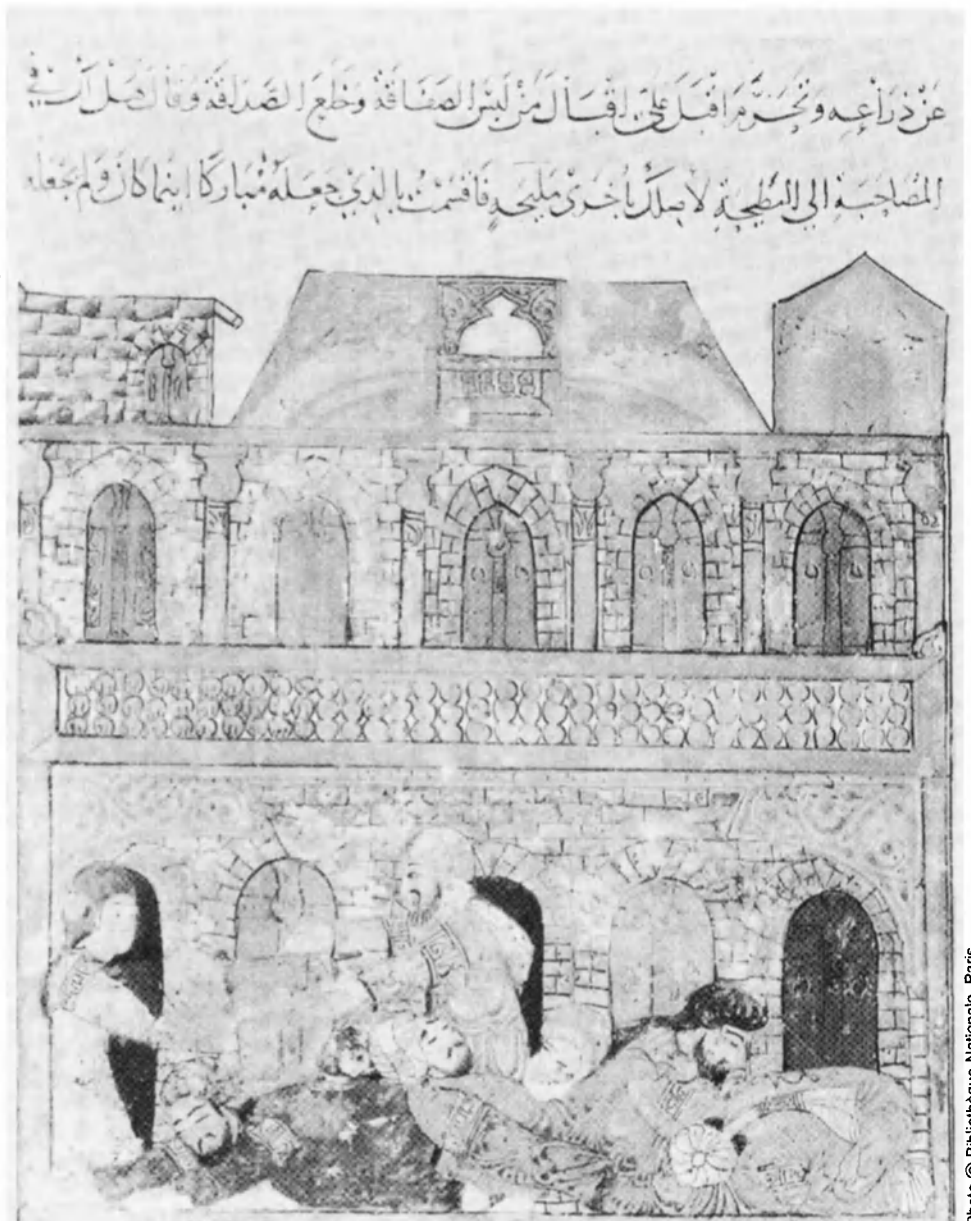 عَنْ ذِرَاعِه وَتَحَزَّمَ اقْبَلَ عَلَيَّ اِقْبَالَ مَنْ لَبِسَ الصَّفَاقَةَ وَخَلَعَ الصَّدَاقَةَ وَقَالَ هَلْ لَكَ في
المُصَاحَبَةِ الي البَطِيحَةِ لاصِلَكَ بِاخْرَى مَلِيحَةٍ فَاقْسَمْتُ بِالَّذِي جَعَلَهُ مُبَارَكًا اينَمَا كَانَ وَلَمْ يَجْعَلْهُ
Photo © Bibliothèque Nationale, Paris